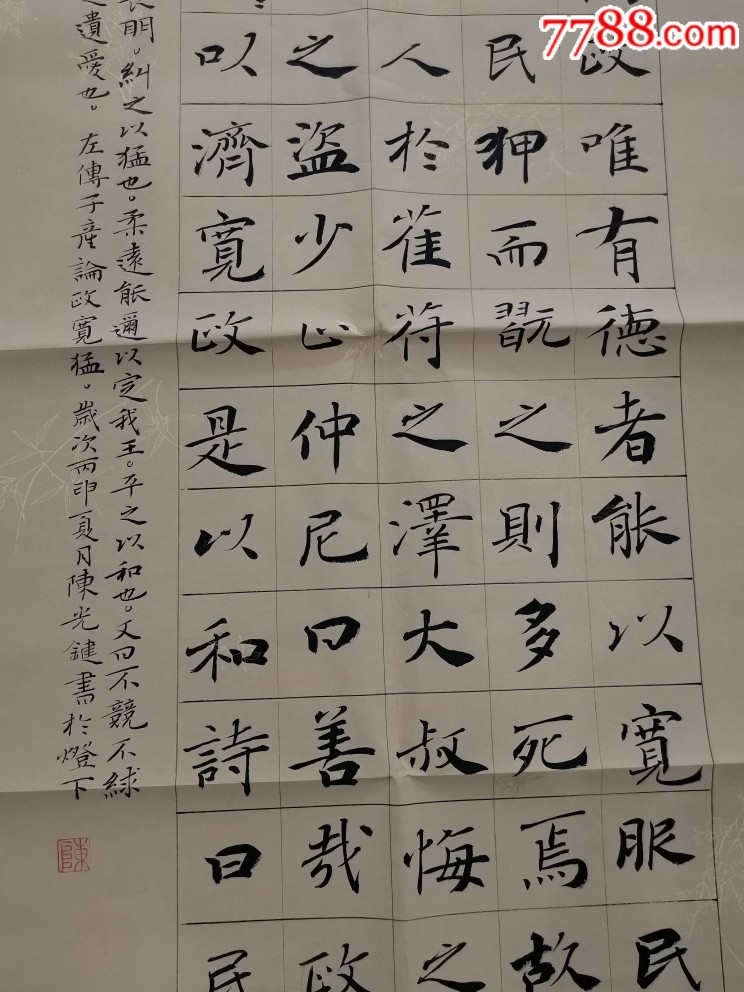 政唯有德者能以寬服民
民狎而翫之則多死焉故
人於萑苻之澤大叔悔之
之盜少止仲尼曰善哉政
以濟寬政是以和詩曰民
明。糾之以猛也。柔遠能邇以定我王。平之以和也。又曰不競不絿
遺愛也。左傳子產論政寬猛。歲次丙申夏月陳光鍵書於燈下
陳
7788.com